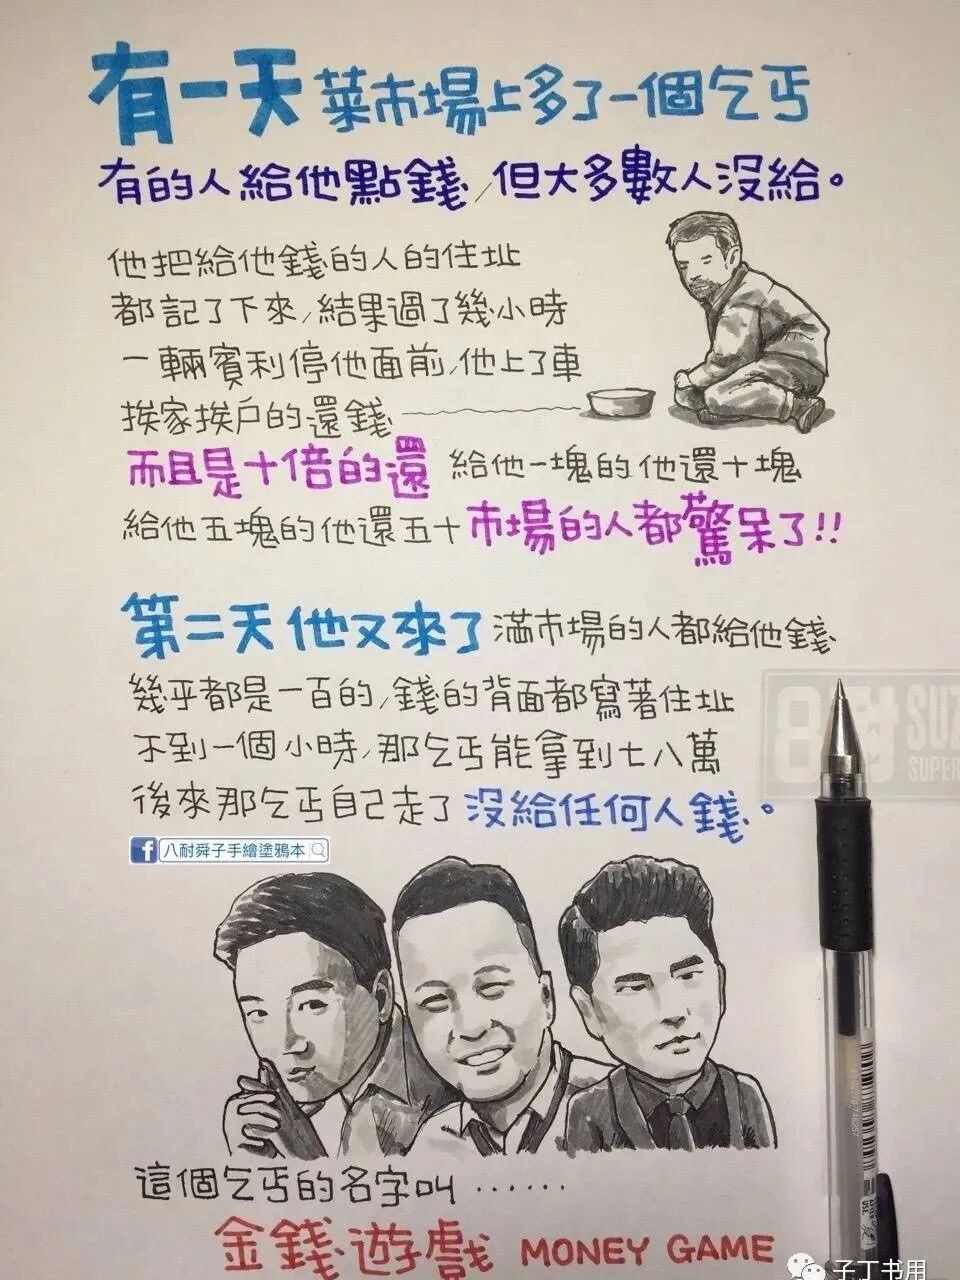 有一天菜市場上多了一個乞丐
有的人給他點錢,但大多數人沒給。
他把給他錢的人的住址
都記了下來,結果過了幾小時
一輛賓利停他面前,他上了車
挨家挨戶的還錢
而且是十倍的還 給他一塊的他還十塊
給他五塊的他還五十市場的人都驚呆了!!
第二天他又來了滿市場的人都給他錢
幾乎都是一百的,錢的背面都寫著住址
不到一個小時,那乞丐能拿到七八萬
後來那乞丐自己走了沒給任何人錢。
8耐 SUZ
SUPER
f 八耐舜子手繪塗鴉本
這個乞丐的名字叫……
金錢遊戲 MONEY GAME
子丁书用